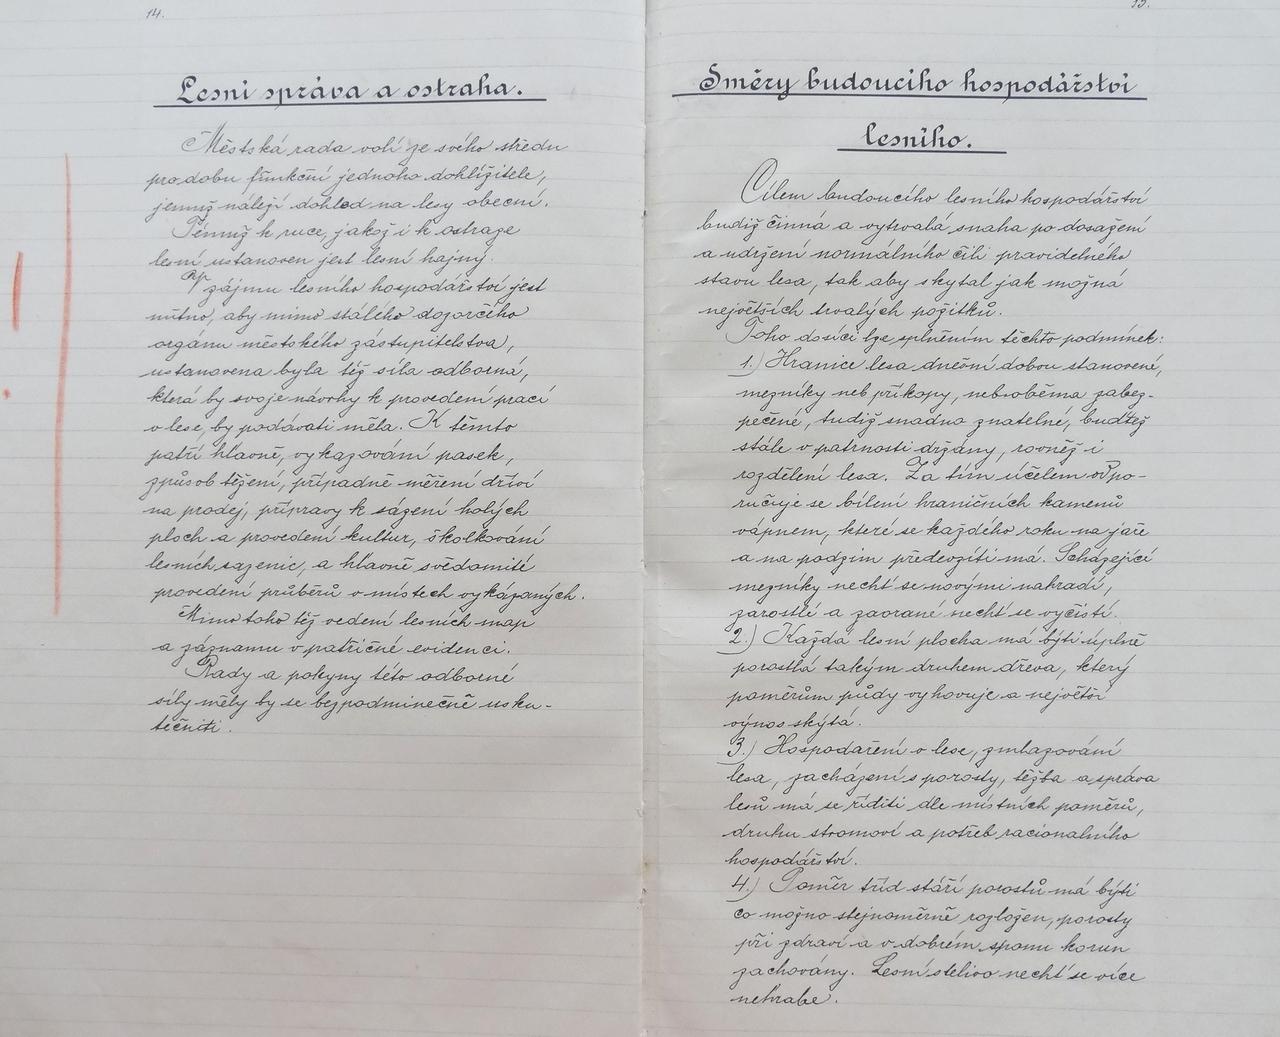 14.
Lesní správa a ostraha.
Městská rada volí ze svého středu
pro dobu funkční jednoho dohlížitele,
jemuž náleží dohled na lesy obecní.
Témuž k ruce, jakož i k ostraze
lesní ustanoven jest lesní hajný.
V zájmu lesního hospodářství jest
nutno, aby mimo stálého dozorčího
orgánu městského zástupitelstva,
ustanovena byla též síla odborná,
která by svoje návrhy k provedení prací
v lese, by podávati měla. K těmto
patří hlavně, vykazování pasek,
způsob těžení, případně měření dříví
na prodej, přípravy k sázení holých
ploch a provedení kultur, školkování
lesních sazenic, a hlavně svědomité
provedení průběrů v místech vykázaných.
Mimo toho též vedení lesních map
a záznamu v patřičné evidenci.
Rady a pokyny této odborné
síly měly by se bezpodminečně usku-
tečniti.
15.
Směry budoucího hospodářství
lesního.
Cílem budoucího lesního hospodářství
budiž činná a vytrvalá snaha po dosažení
a udržení normálního čili pravidelného
stavu lesa, tak aby skytal jak možná
největších trvalých požitků.
Toho dosíci lze splněním těchto podmínek:
1.) Hranice lesa dnešní dobou stanovené,
mezníky neb příkopy, neb oběma zabez-
pečené, tudiž snadno znatelné, buďtež
stále v patrnosti držány, rovněž i
rozdělení lesa. Za tím účelem odpo-
ručuje se bílení hraničních kamenů
vápnem, které se každého roku na jaře
a na podzim předevzíti má. Scházející
mezníky nechť se novými nahradí,
zarostlé a zaorané nechť se vyčistí.
2.) Každá lesní plocha má býti úplně
porostlá takým druhem dřeva, který
poměrům půdy vyhovuje a největší
výnos skýtá.
3.) Hospodaření v lese, zmlazování
lesa, zacházení s porosty, těžba a správa
lesů má se říditi dle místních poměrů,
druhu stromoví a potřeb racionalního
hospodářství.
4.) Poměr tříd stáří porostů má býti
co možno stejnoměrně rozložen, porosty
při zdraví a v dobrém sponu korun
zachovány. Lesní stelivo nechť se více
nehrabe.